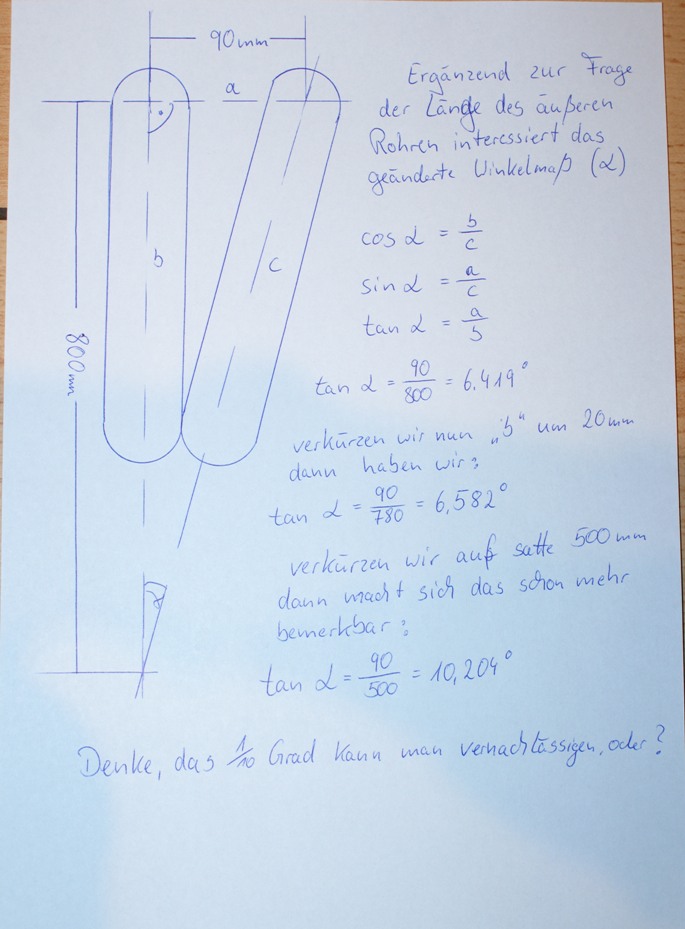 90mm
a
b
c
800mm
α
Ergänzend zur Frage
der Länge des äußeren
Rohren interessiert das
geänderte Winkelmaß (α)
cos α = b/c
sin α = a/c
tan α = a/b
tan α = 90/800 = 6.419°
verkürzen wir nun „b“ um 20mm
dann haben wir:
tan α = 90/780 = 6,582°
verkürzen wir auf satte 500mm
dann macht sich das schon mehr
bemerkbar:
tan α = 90/500 = 10,204°
Denke, das 1/10 Grad kann man vernachlässigen, oder?